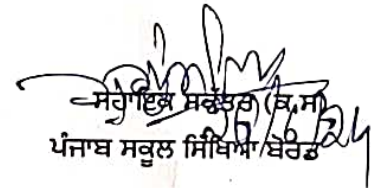 ਸਹਾਇਕ ਸਕੱਤਰ (ਕ.ਸ)
ਪੰਜਾਬ ਸਕੂਲ ਸਿੱਖਿਆ ਬੋਰਡ